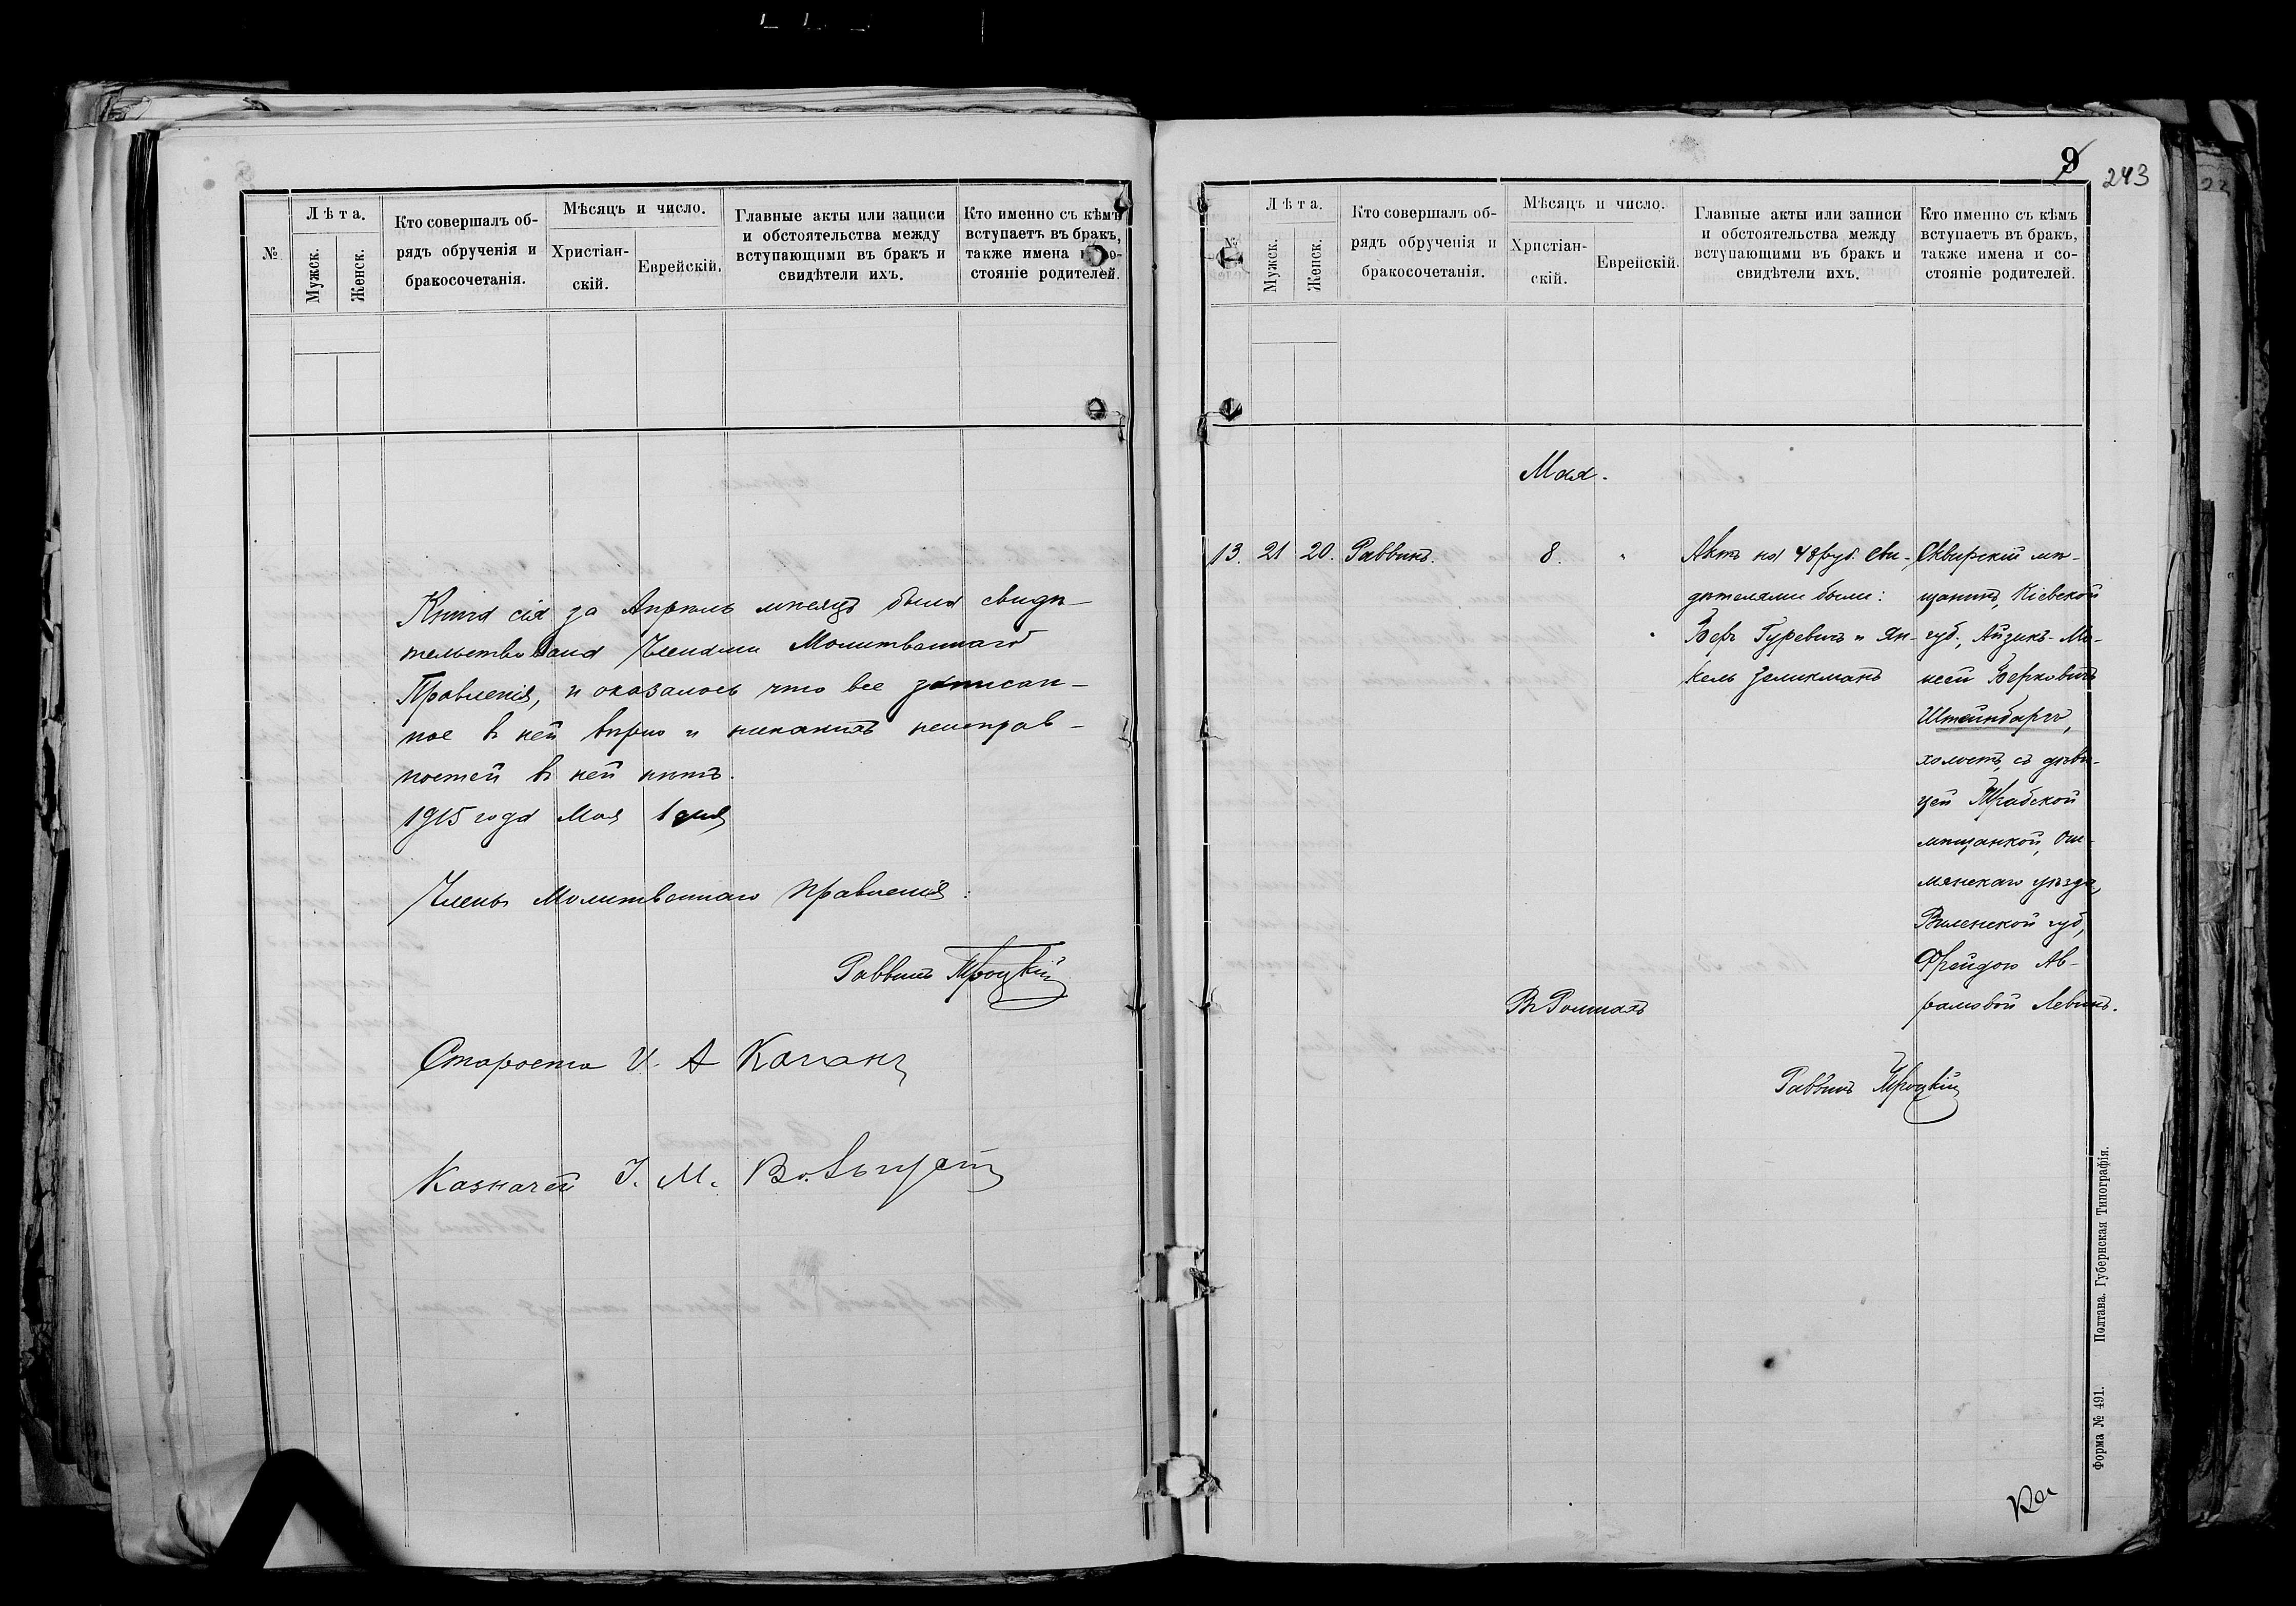 №
Лѣта.
Мужск.
Женск.
Кто совершалъ об-
рядъ обрученія и
бракосочетанія.
Мѣсяцъ и число.
Христіан-
скій.
Еврейскій.
Главные акты или записи
и обстоятельства между
вступающими въ бракъ и
свидѣтели ихъ.
Кто именно съ кѣмъ
вступаетъ въ бракъ,
также имена и со-
стояніе родителей.
Книга сія за Апрѣль мѣсяцъ была свидѣ-
тельствована Членами Молитвеннаго
Правленія, и оказалось что все записан-
ное въ ней вѣрно и никакихъ неисправ-
ностей въ ней нѣтъ.
1915 года Мая 1 дня
Члены Молитвеннаго Правленія:
Раввинъ Троцкій
Староста И. А Каганъ
Казначей I. М.
9
243
№
Лѣта.
Мужск.
Женск.
Кто совершалъ об-
рядъ обрученія и
бракосочетанія.
Мѣсяцъ и число.
Христіан-
скій.
Еврейскій.
Главные акты или записи
и обстоятельства между
вступающими въ бракъ и
свидѣтели ихъ.
Кто именно съ кѣмъ
вступаетъ въ бракъ,
также имена и со-
стояніе родителей.
Мая.
13. 21 20. Раввинъ. 8. "
Актъ на 48 руб. Сви-
дѣтелями были:
Беръ Гуревичъ и Ян-
кель Зеликманъ
Сквирскій мѣ-
щанинъ, Кіевской
губ., Айзикъ-Мо-
исей Берковичъ
Штейнбаргъ,
холостъ, съ дѣви-
цей Трабской
мѣщанкой, Ош-
мянскаго уѣзда,
Виленской губ,
Фрейдою Ав-
рамовой Левинъ.
Въ Ромнахъ
Раввинъ Троцкій
Форма № 491. Полтава. Губернская Типографія.